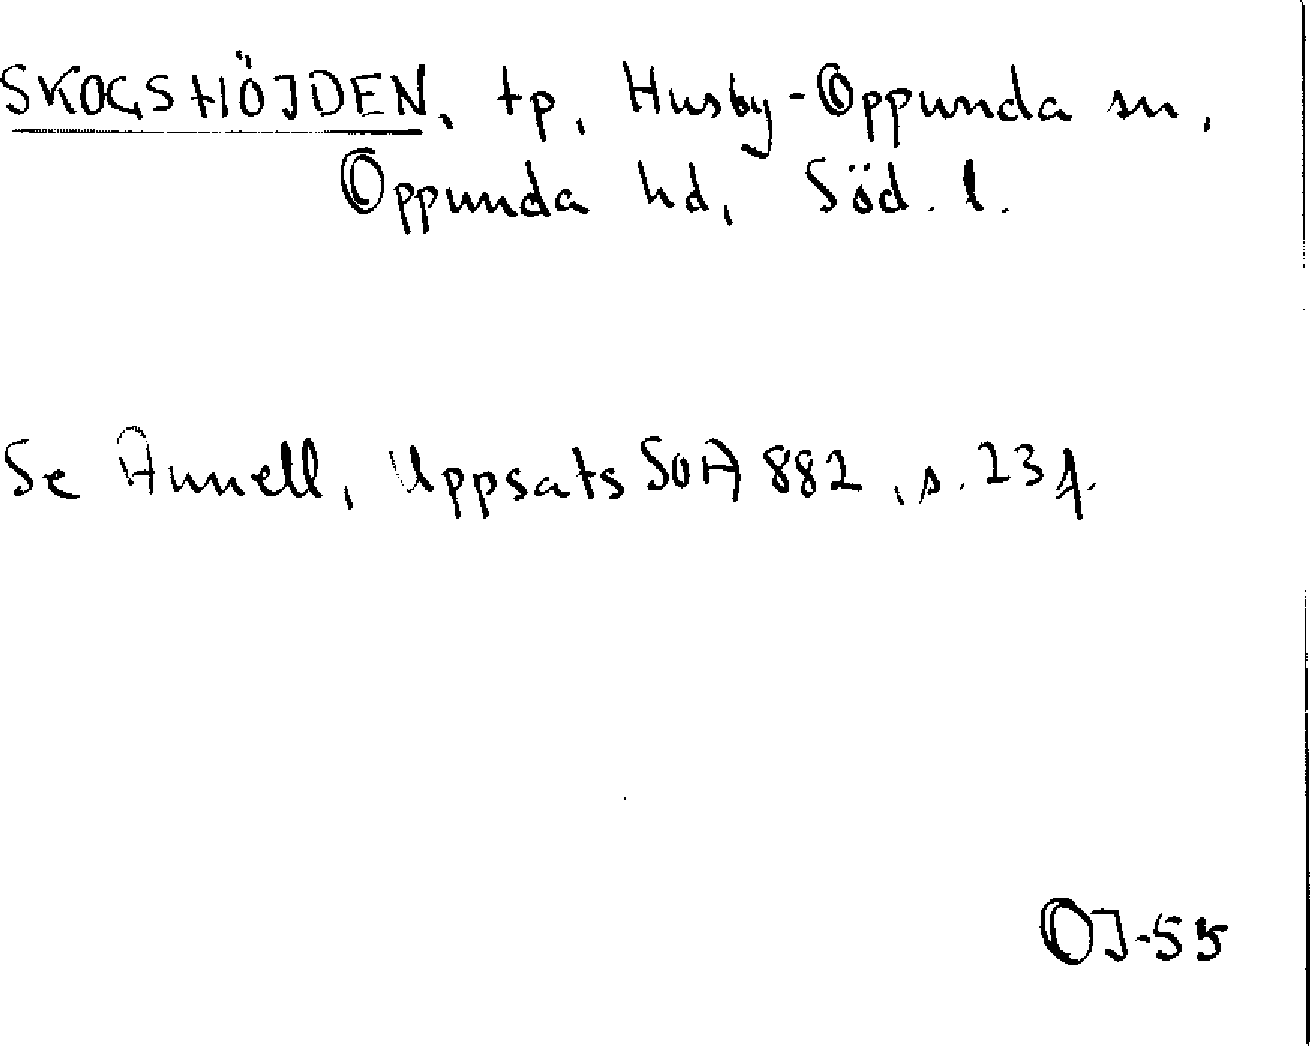 SKOGSHÖJDEN, tp, Husby-Oppunda sn,
Oppunda hd, Söd. l.
Se Annell, Uppsats SOA 882, s. 23 f.
OJ-55